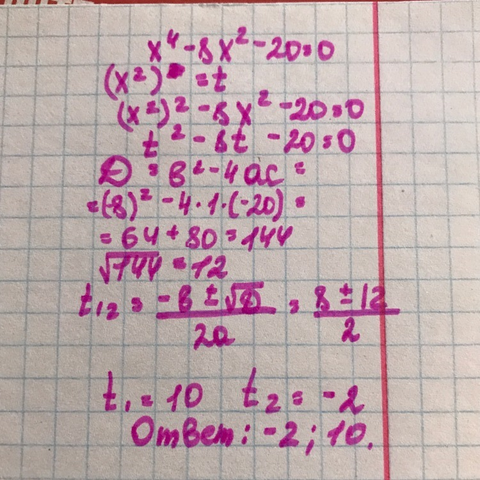 x⁴ - 8x² - 20 = 0
(x²) = t
(x²)² - 8x² - 20 = 0
t² - 8t - 20 = 0
D = b² - 4ac =
= (-8)² - 4·1·(-20) =
= 64 + 80 = 144
√144 = 12
t₁₂ = (-b ± √D)/2a = (8 ± 12)/2
t₁ = 10 t₂ = -2
Ответ: -2; 10.